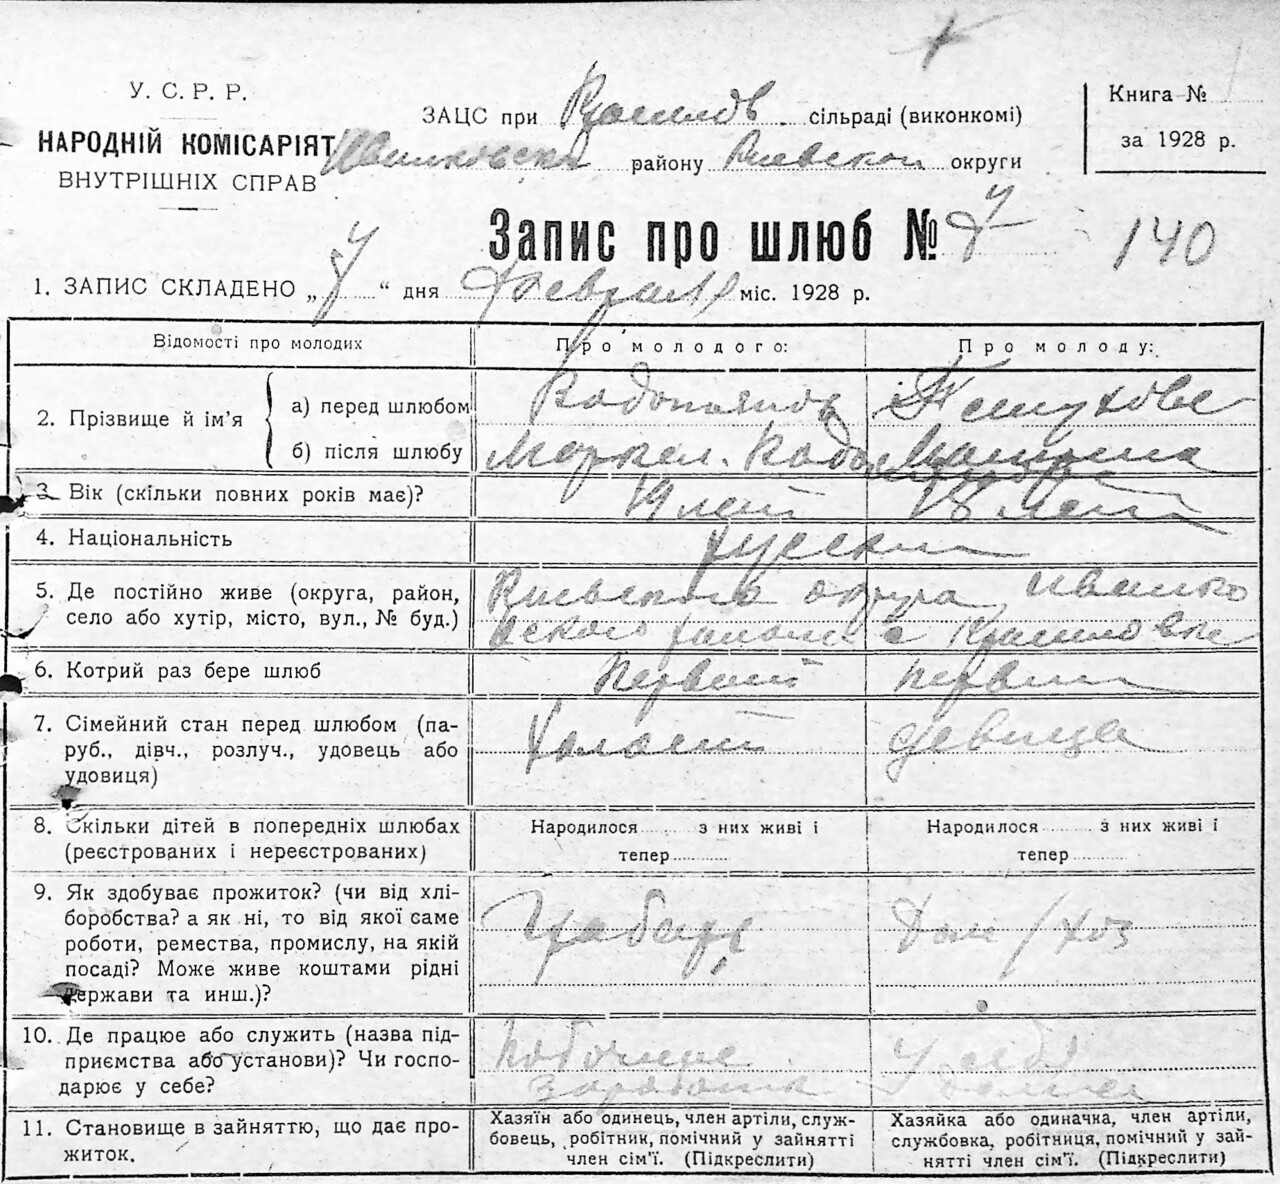 У. С. Р. Р.
НАРОДНІЙ КОМІСАРІЯТ
ВНУТРІШНІХ СПРАВ
ЗАЦС при сільраді (виконкомі)
району Киевской округи
Книга №
за 1928 р.
Запис про шлюб №
140
1. ЗАПИС СКЛАДЕНО „ “ дня Февраля міс. 1928 р.
Відомості про молодих
Про молодого:
Про молоду:
2. Прізвище й ім’я
а) перед шлюбом
б) після шлюбу
3. Вік (скільки повних років має)?
19 лет
18 лет
4. Національність
русские
5. Де постійно живе (округа, район,
село або хутір, місто, вул., № буд.)
Киевского округа, Иванко
вского района с
6. Котрий раз бере шлюб
Первый
первый
7. Сімейний стан перед шлюбом (па-
руб., дівч., розлуч., удовець або
удовиця)
Холост
девица
8. Скільки дітей в попередніх шлюбах
(реєстрованих і нереєстрованих)
Народилося з них живі і
тепер
Народилося з них живі і
тепер
9. Як здобуває прожиток? (чи від хлі-
боробства? а як ні, то від якої саме
роботи, ремества, промислу, на якій
посаді? Може живе коштами рідні
держави та инш.)?
Грабарь
Дом / хоз
10. Де працює або служить (назва під-
приємства або установи)? Чи госпо-
дарює у себе?
Побочные
заработки
У себя
11. Становище в зайняттю, що дає про-
житок.
Хазяїн або одинець, член артіли, служ-
бовець, робітник, помічний у зайнятті
член сім’ї. (Підкреслити)
Хазяйка або одиначка, член артіли,
службовка, робітниця, помічний у зай-
нятті член сім’ї. (Підкреслити)